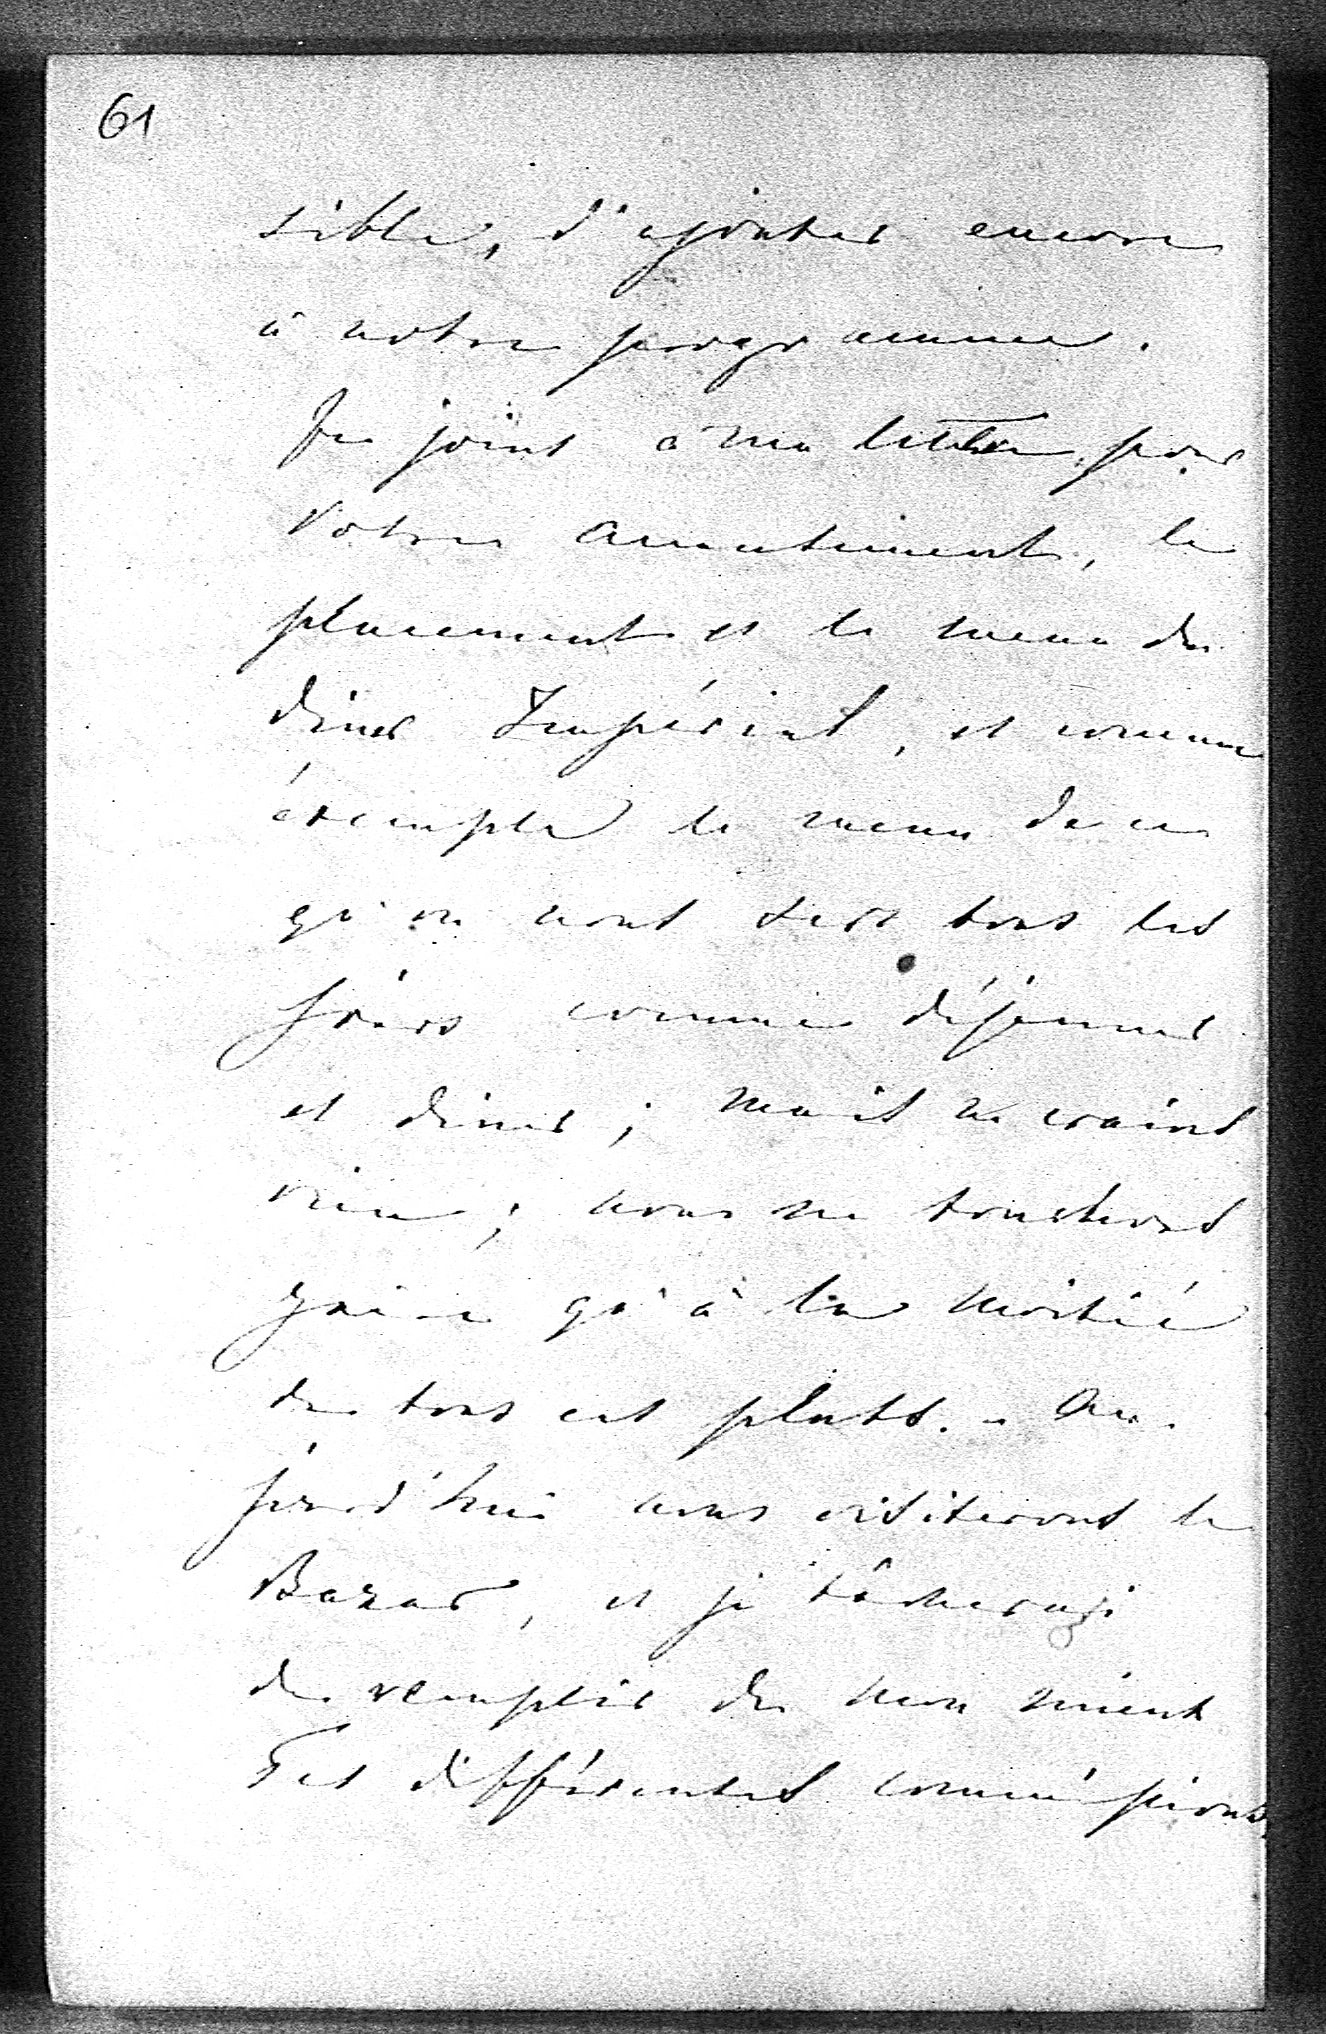 61
sible, d'ajouter encore
à notre programme.
Je joins à ma lettre, pour
Votre amusement, le
placement et le menu du
diner Impérial, et comme
éxemple le menu de ce
qu'on nous sert tous les
jours comme déjeuner
et diner; mais ne crains
rien; nous ne touchons
guère qu'à la moitié
de tous ces plats. - Au-
jourd'hui nous visiterons le
Bazar, et je tâcherai
de remplir de mon mieux
Tes différentes commissions.